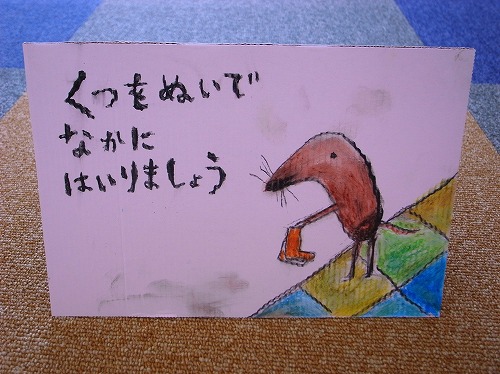 くつをぬいで
なかに
はいりましょう